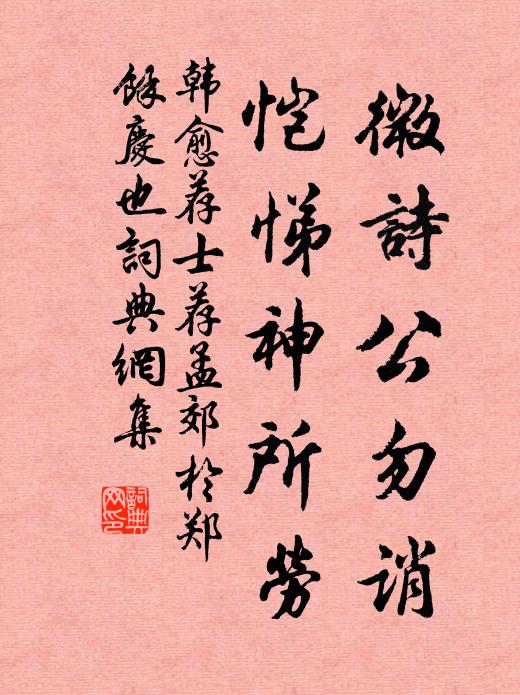 微詩公勿誚
恺悌神所勞
韩愈荐士荐孟郊於郑
餘慶也詞典網集
詞典
网印